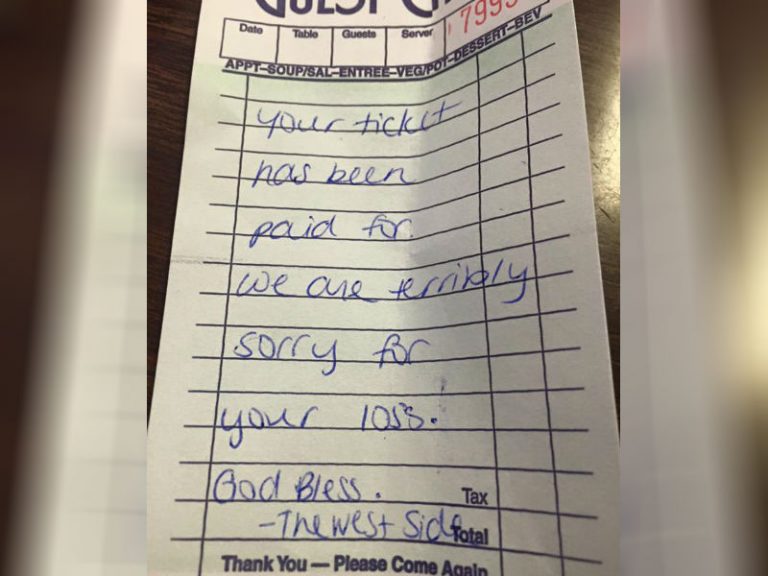 GUEST
7995
Date Table Guests Server
APPT-SOUP/SAL-ENTREE-VEG/POT-DESSERT-BEV
your ticket
has been
paid for
we are terribly
sorry for
your loss.
God Bless.
Tax
-The West Side
Total
Thank You — Please Come Again